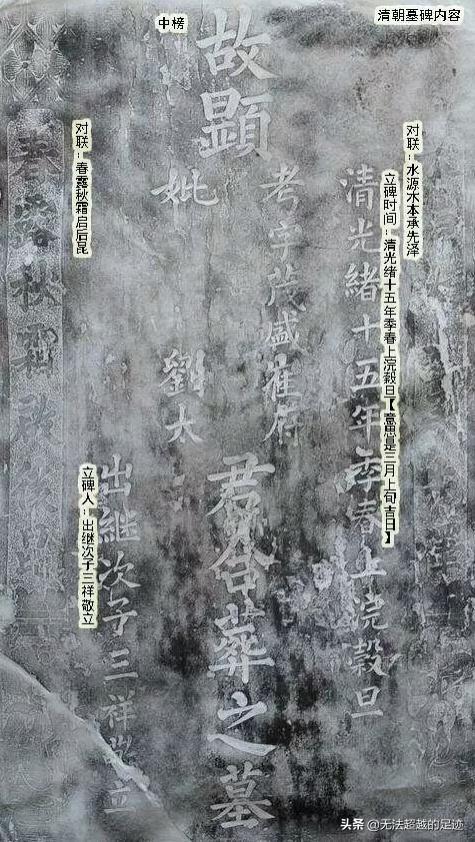 清朝墓碑内容
中榜
对联：水源木本承先泽
立碑时间：清光绪十五年季春上浣榖日【意思是三月上旬吉日】
清光緒十五年季春上浣榖旦
故顯
考字茂盛崔府
妣
劉太
君合葬之墓
对联：春露秋霜启后昆
立碑人：出继次子三祥敬立
出继次子三祥敬立
春露秋霜啟
头条 @无法超越的足迹